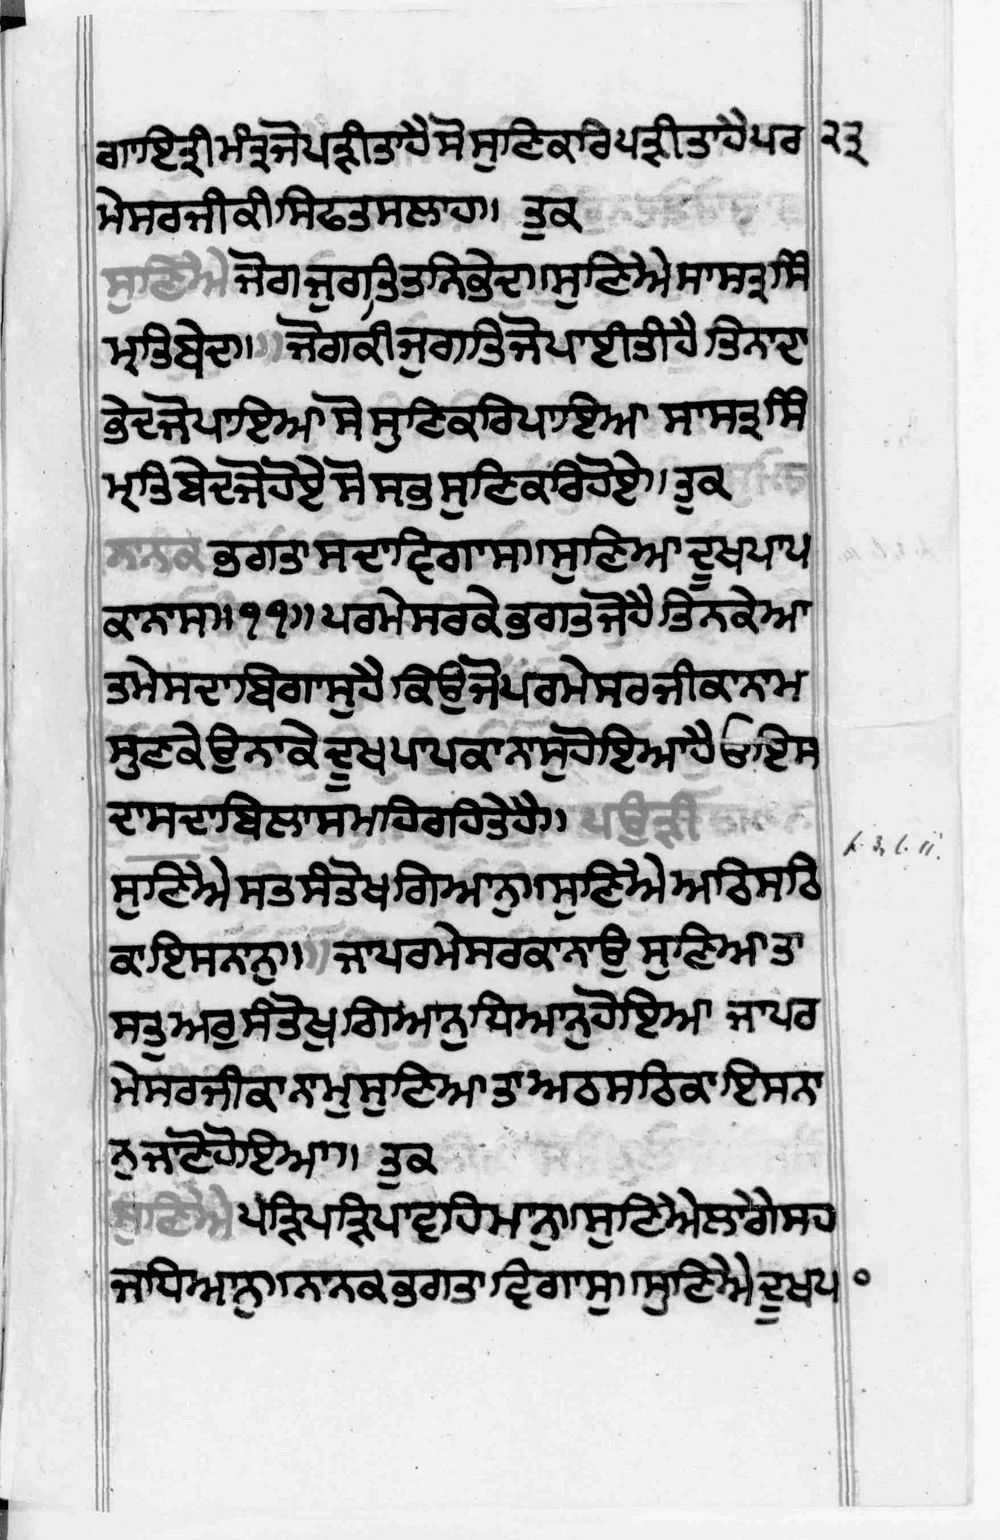 ਗਾਇਤ੍ਰੀ ਮੰਤ੍ਰ ਜੋ ਪੜੀਤਾ ਹੈ ਸੋ ਸੁਣਿ ਕਰਿ ਪੜੀਤਾ ਹੈ ਪਰ ੨੩
ਮੇਸਰ ਜੀ ਕੀ ਸਿਫਤ ਸਲਾਹ॥ ਤੁਕ
ਸੁਣਿਐ ਜੋਗ ਜੁਗਤਿ ਤਨਿ ਭੇਦ॥ ਸੁਣਿਐ ਸਾਸਤ੍ਰ ਸਿੰ
ਮ੍ਰਤਿ ਬੇਦ॥ ਜੋਗ ਕੀ ਜੁਗਤਿ ਜੋ ਪਾਈਤੀ ਹੈ ਤਿਨਾ ਦਾ
ਭੇਦ ਜੋ ਪਾਇਆ ਸੋ ਸੁਣਿ ਕਰਿ ਪਾਇਆ ਸਾਸਤ੍ਰ ਸਿੰ
ਮ੍ਰਤਿ ਬੇਦ ਜੋ ਹੋਏ ਸੋ ਸਭ ਸੁਣਿ ਕਰਿ ਹੋਏ॥ ਤੁਕ
ਨਾਨਕ ਭਗਤਾ ਸਦਾ ਵਿਗਾਸ॥ ਸੁਣਿਆ ਦੂਖ ਪਾਪ
ਕਾ ਨਾਸ॥੧੧॥ ਪਰਮੇਸਰ ਕੇ ਭਗਤ ਜੋ ਹੈ ਤਿਨ ਕੇ ਆ
ਤਮੇ ਸਦਾ ਬਿਗਾਸੁ ਹੈ ਕਿਉਂ ਜੋ ਪਰਮੇਸਰ ਜੀ ਕਾ ਨਾਮ
ਸੁਣ ਕੇ ਉਨਾ ਕੇ ਦੂਖ ਪਾਪ ਕਾ ਨਾਸੁ ਹੋਇਆ ਹੈ ਓਇ ਸ
ਦਾ ਸਦਾ ਬਿਲਾਸ ਮਾਹਿ ਰਹਿਤੇ ਹੈ॥ ਪਉੜੀ
ਸੁਣਿਐ ਸਤ ਸੰਤੋਖ ਗਿਆਨੁ॥ ਸੁਣਿਐ ਅਠਿਸਠਿ
ਕਾ ਇਸਨਾਨੁ॥ ਜਾ ਪਰਮੇਸਰ ਕਾ ਨਾਉ ਸੁਣਿਆ ਤਾ
ਸਤੁ ਅਰੁ ਸੰਤੋਖੁ ਗਿਆਨੁ ਧਿਆਨੁ ਹੋਇਆ ਜਾ ਪਰ
ਮੇਸਰ ਜੀ ਕਾ ਨਾਮੁ ਸੁਣਿਆ ਤਾ ਅਠਸਠਿ ਕਾ ਇਸਨਾ
ਨੁ ਜਾਣੋ ਹੋਇਆ॥ ਤੁਕ
ਸੁਣਿਐ ਪੜਿ ਪੜਿ ਪਾਵਹਿ ਮਾਨੁ॥ ਸੁਣਿਐ ਲਾਗੇ ਸਹ
ਜ ਧਿਆਨੁ॥ ਨਾਨਕ ਭਗਤਾ ਵਿਗਾਸੁ॥ ਸੁਣਿਐ ਦੂਖ ਪ